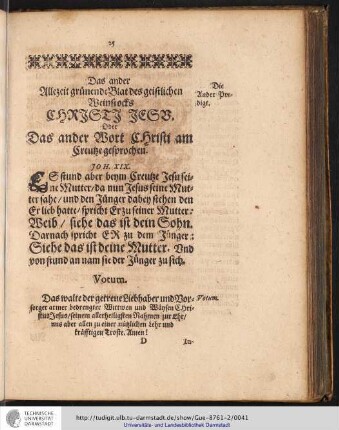 25
Das ander
Allezeit grünende Blat des geistlichen
Weinstocks
CHRISTI JESV.
Oder
Das ander Wort Christi am
Creutze gesprochen.
JOH. XIX.
Die
Ander Pre-
digt.
ES stund aber beym Creutze Jesu sei-
ne Mutter/ da nun Jesus seine Mut-
ter sahe/ und den Jünger dabey stehen den
Er lieb hatte/ spricht Er zu seiner Mutter:
Weib/ siehe das ist dein Sohn.
Darnach spricht ER zu dem Jünger:
Siehe das ist deine Mutter. Und
von stund an nam sie der Jünger zu sich.
Votum.
Das walte der getreue Liebhaber und Vor-
sorger armer bedrengter Wittwen und Wäysen Chri-
stus Jesus/ seinem allerheiligsten Nahmen zur Ehr/
uns aber allen zu einer nützlichen Lehr und
kräfftigen Troste. Amen!
Votum.
D
In-
TECHNISCHE
UNIVERSITÄT
DARMSTADT
http://tudigit.ulb.tu-darmstadt.de/show/Gue-8761-2/0041
Universitäts- und Landesbibliothek Darmstadt